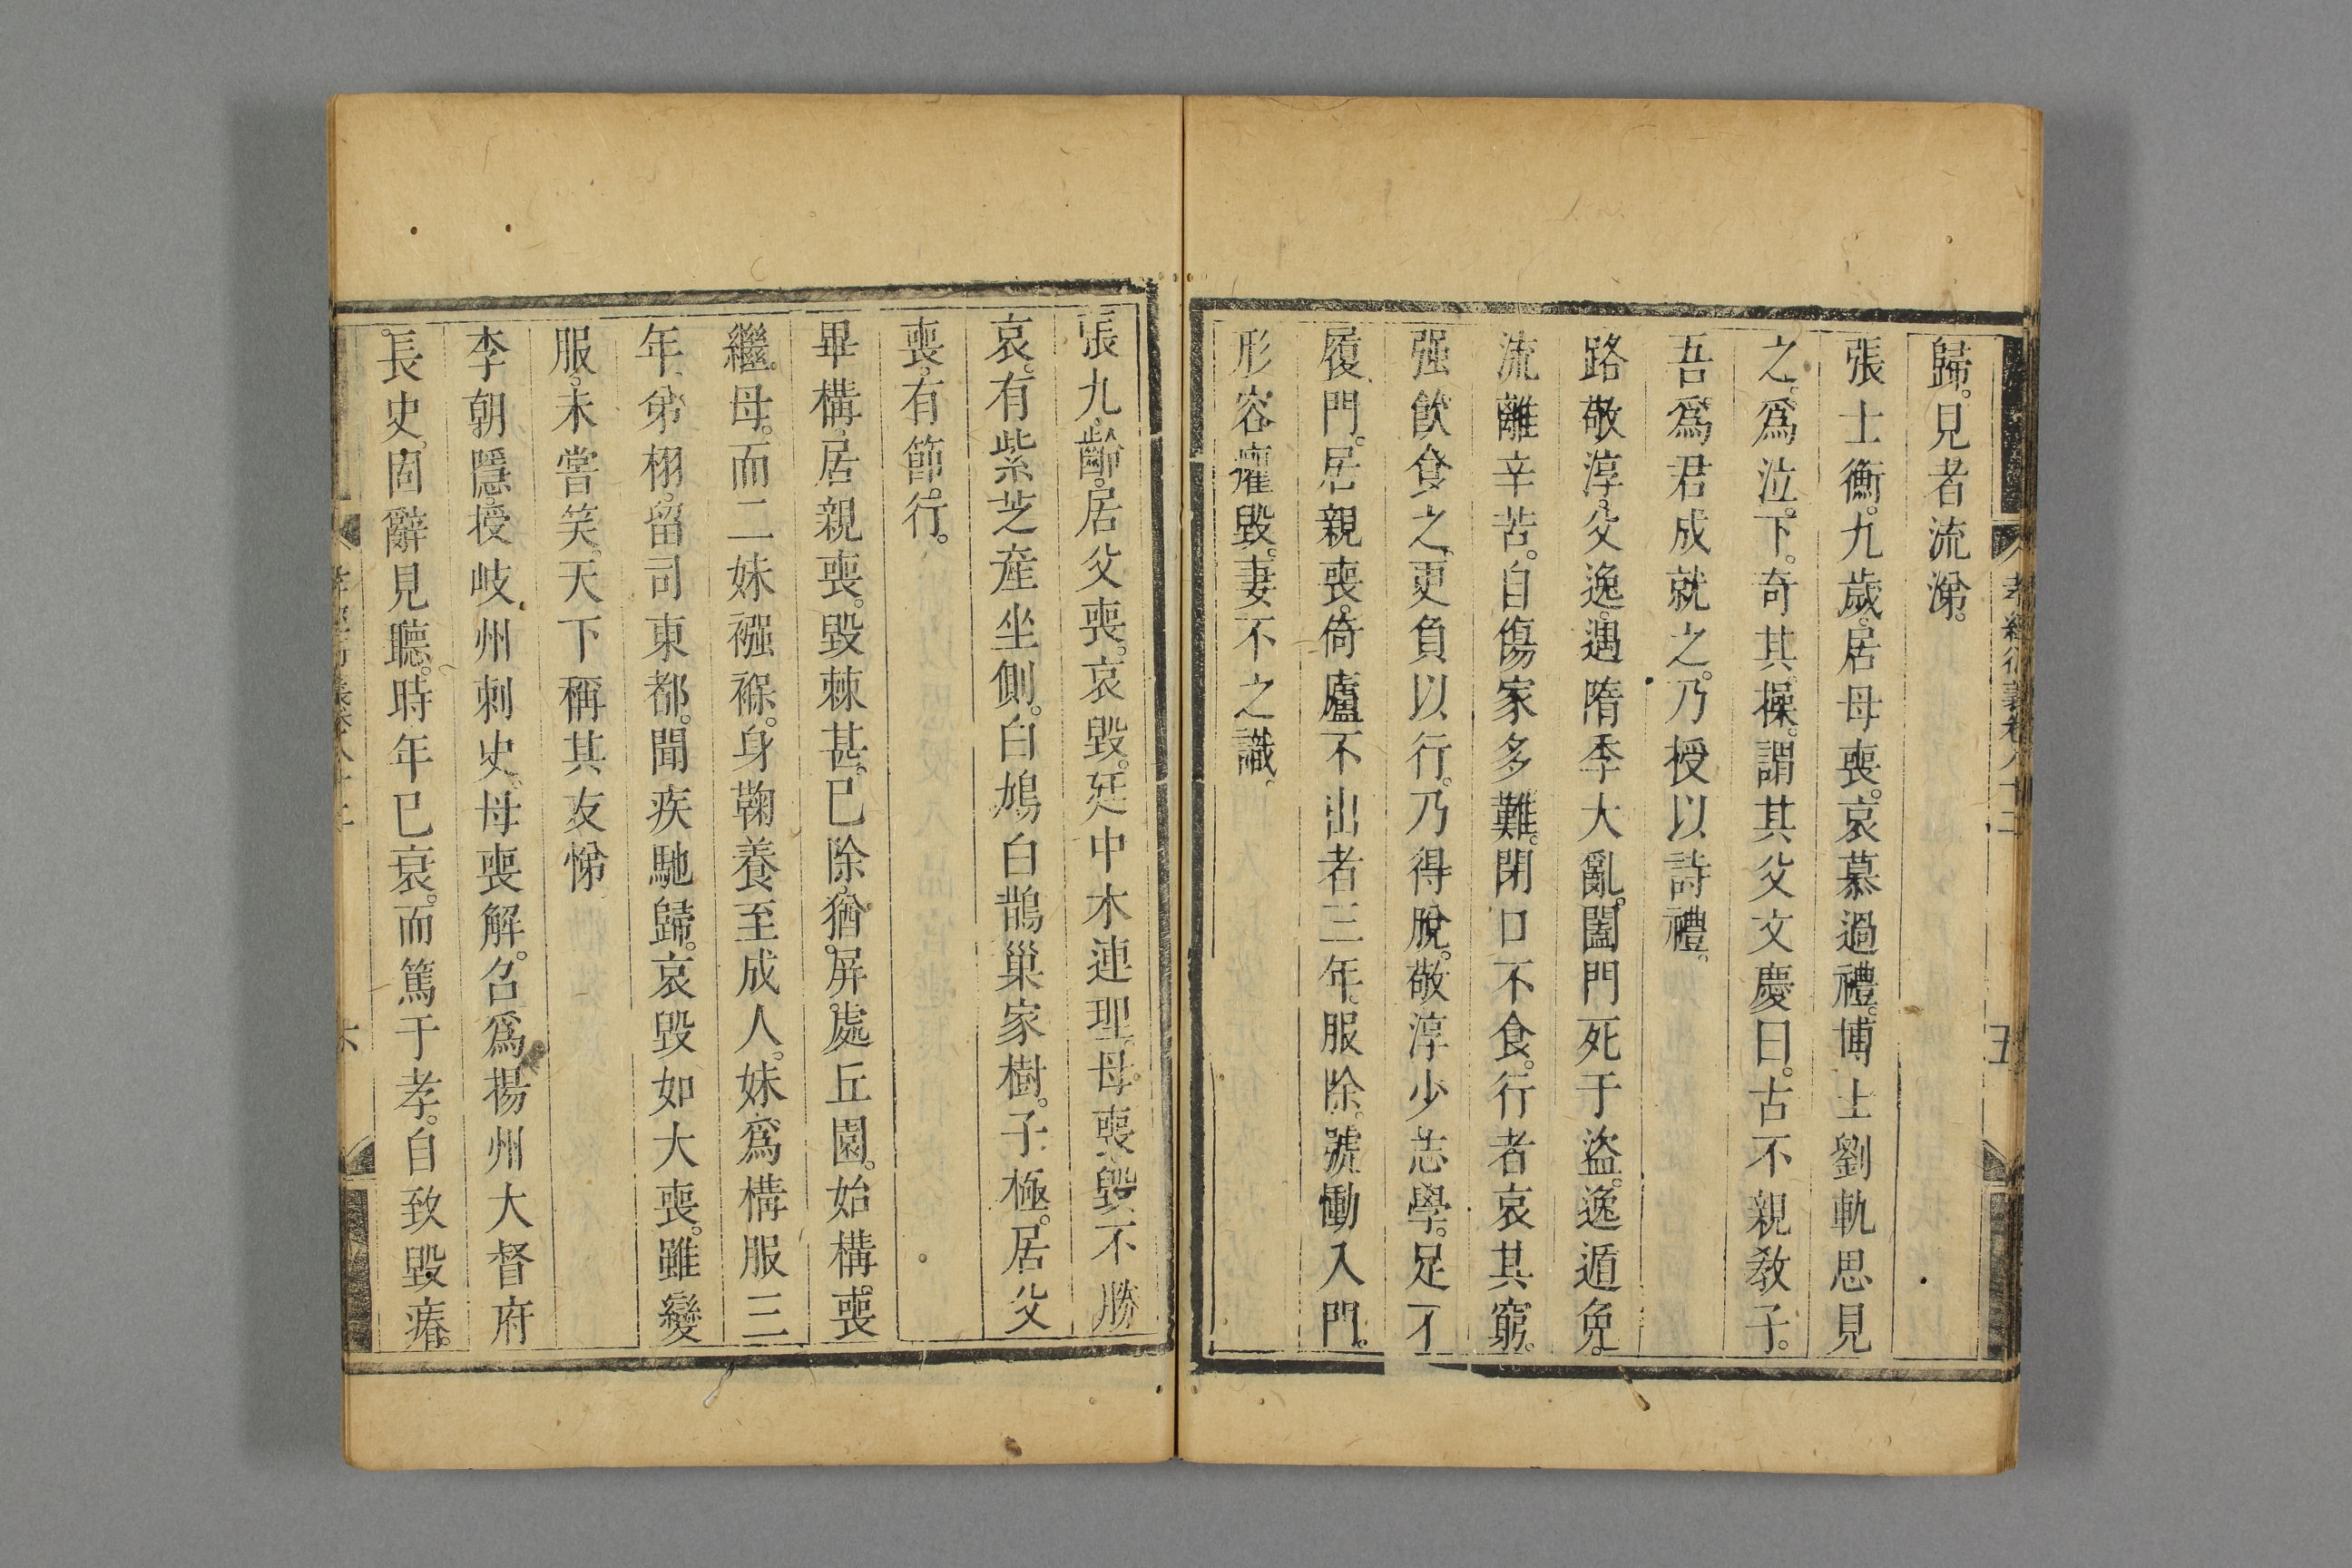 歸。見者流涕。
張士衡。九歲。居母喪。哀慕過禮。博士劉軌思見
之。爲泣。下。奇其操。謂其父文慶曰。古不親敎子。
吾。爲君成就之。乃授以詩禮。
路敬淳。父逸。遇隋季大亂。闔門死于盜。逸遁免。
流離辛苦。自傷家多難。閉口不食。行者哀其窮。
强飲食之。更負以行。乃得脫。敬淳少志學。足不
履門。居親喪。倚廬不出者三年。服除。號慟入門。
形容癯毀。妻不之識。
張九齡。居父喪。哀毀。廷中木連理。母喪毀不勝
哀。有紫芝產坐側。白鳩白鵲巢家樹。子極。居父
喪。有節行。
畢構。居親喪。毀棘甚。已除。猶。屏處丘園。始構。喪
繼。母。而二妹襁褓。身鞠養至成人。妹爲構服三
年。弟栩。留司東都。聞疾馳歸。哀毀如大喪。雖變
服。未嘗笑。天下稱其友悌
李朝隱。授岐州刺史。母喪解。召爲揚州大督府
長史。固辭見聽。時年已衰。而篤于孝。自致毀瘠。
孝經衍義卷八十二
五
六